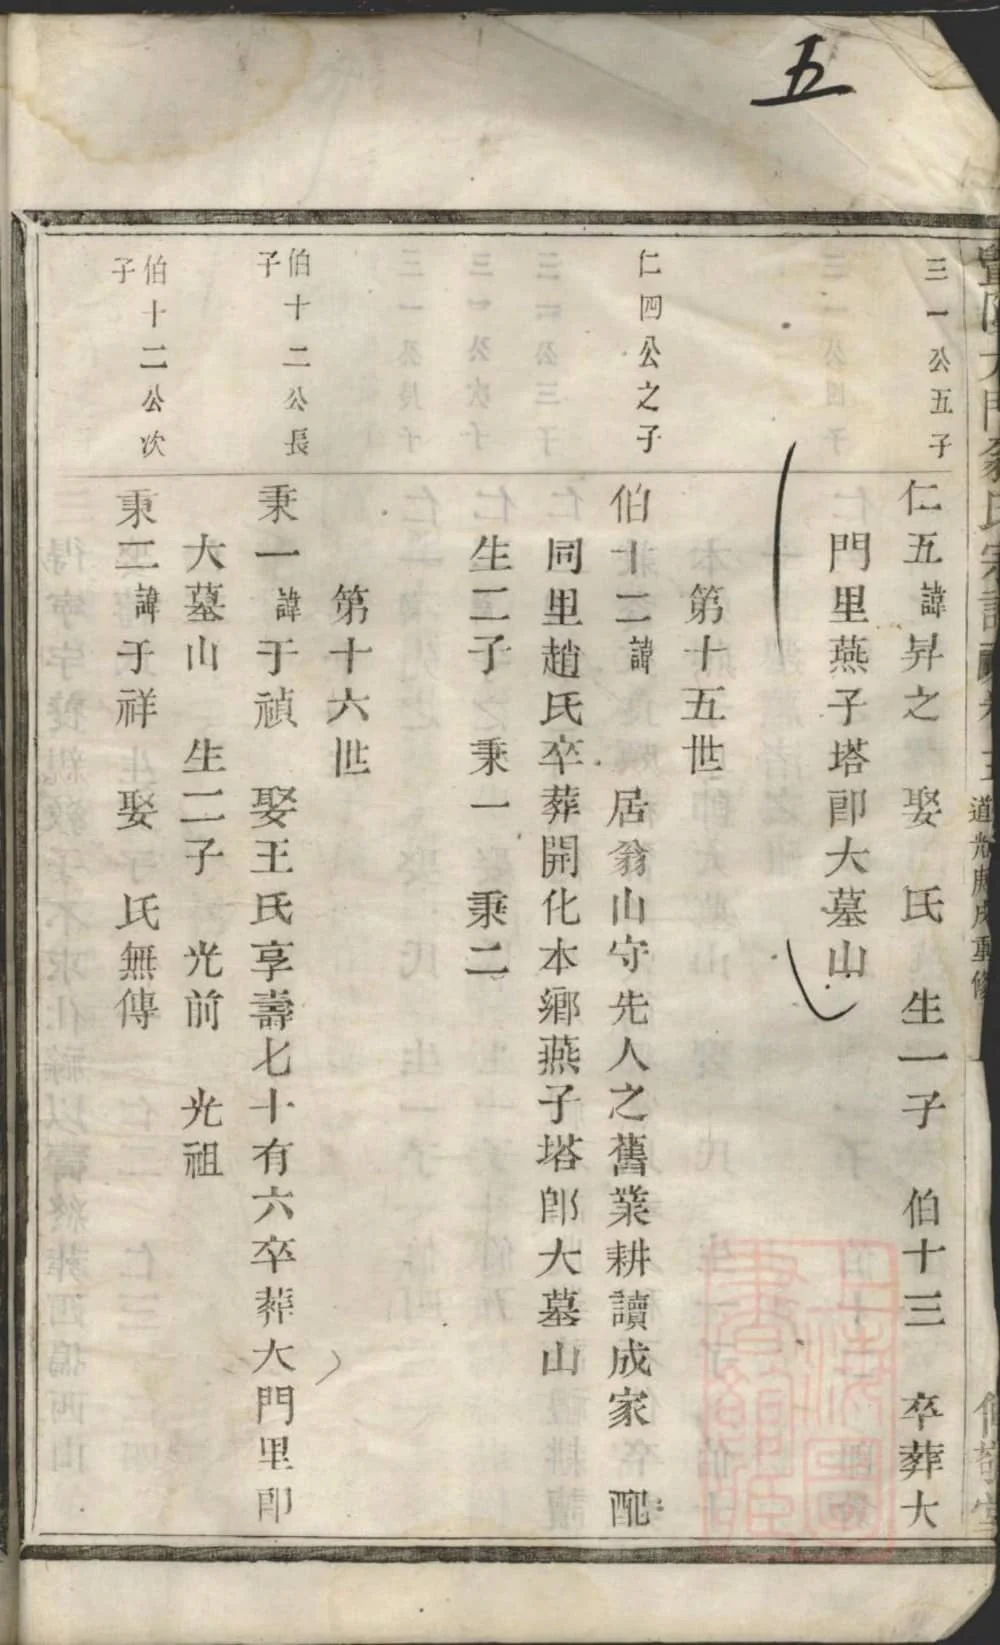 五
三一公五子
仁五諱昇之　娶　氏　生一子　伯十三　卒葬大
門里燕子塔卽大墓山
第十五世
仁四公之子
伯十二諱　　居翁山守先人之舊業耕讀成家　配
同里趙氏卒葬開化本鄉燕子塔卽大墓山
生二子　秉一　秉二
第十六世
伯十二公長子
秉一諱于禎　娶王氏享壽七十有六卒葬大門里卽
大墓山　生二子　光前　光祖
伯十二公次子
秉二諱于祥　娶　氏無傳